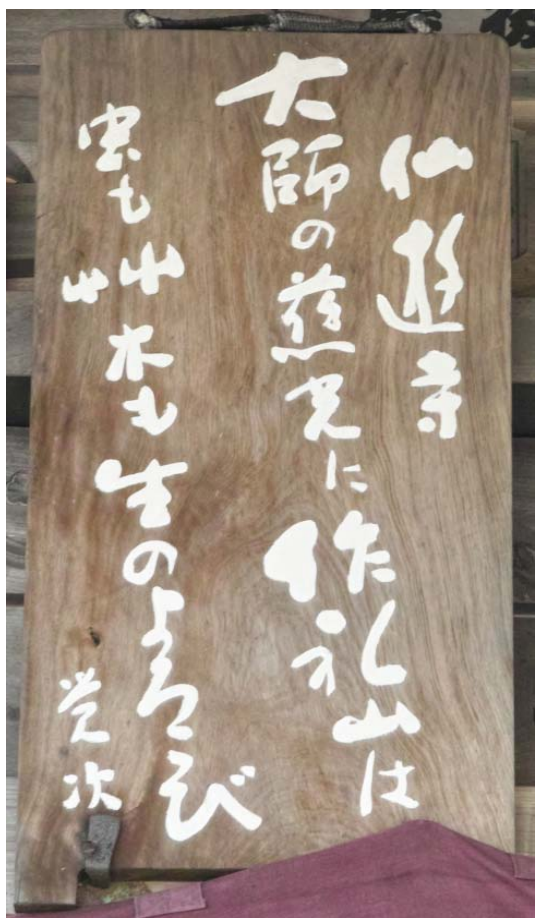 仙遊寺
大師の慈光に作礼山は
虫も艸木も生のよろこび
覚次